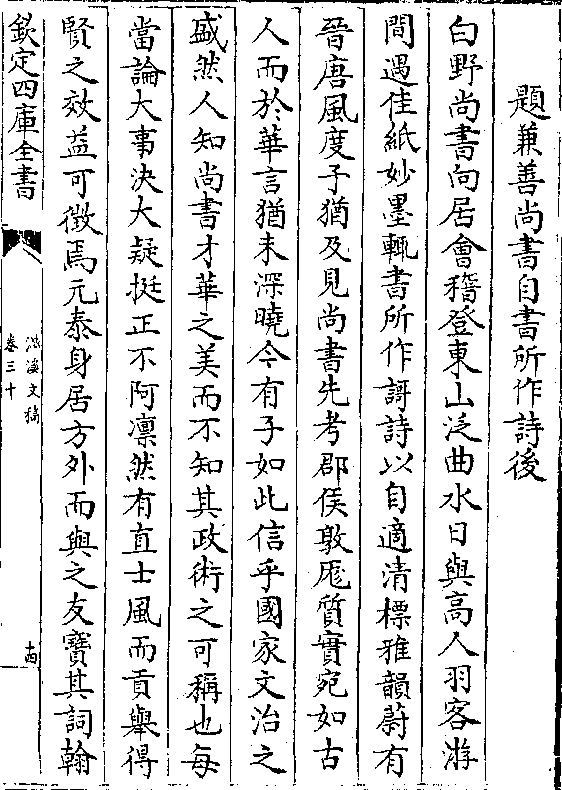 題兼善尚書自書所作詩後
白野尚書向居會稽登東山泛曲水日與高人羽客游
間遇佳紙妙墨輒書所作謌詩以自適清標雅韻蔚有
晉唐風度予猶及見尚書先考郡侯敦龎質實宛如古
人而於華言猶未深曉今有子如此信乎國家文治之
盛然人知尚書才華之美而不知其政術之可稱也每
當論大事決大疑挺正不阿凛然有直士風而貢舉得
賢之效益可徵焉元泰身居方外而與之友寶其詞翰
欽定四庫全書
滋溪文稿
卷三十
十四